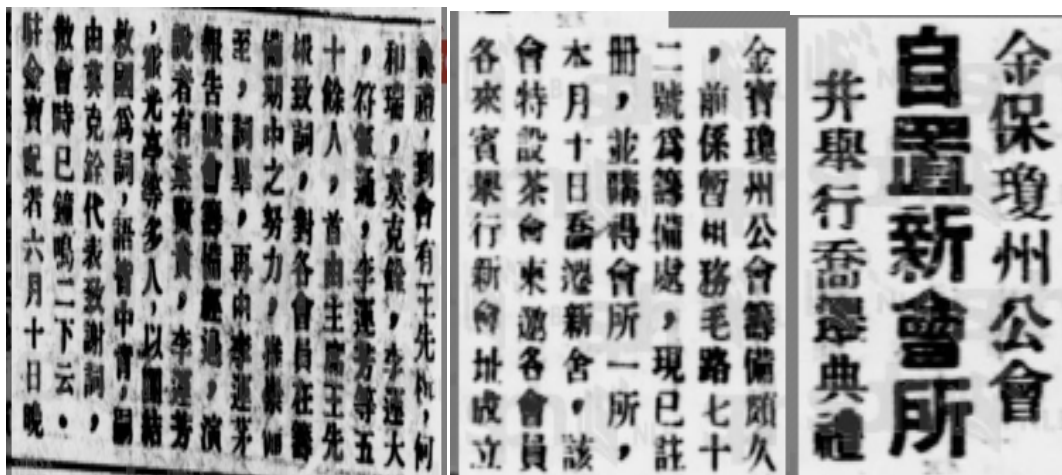 金保瓊州公會
自置新會所
并舉行喬遷典禮
金寶瓊州公會籌備頗久
，前係暫用務毛路七十
二號為籌備處，現已註
册，並購得會所一所，
本月十日喬遷新舍，該
會特設茶會柬邀各會員
各來賓舉行新會址成立
典禮，到會有王先樹，何
和瑞，莫克餘，李運大
，符氣通，李運芳等五
十餘人，首由主席王先
樹致詞，對各會員在籌
備期中之努力，推崇備
至，詞畢，再由李運茅
報告該會籌備經過，演
說者有黃賢貴，李運芳
，張光亭等多人，以團結
救國為詞，語皆中肯，嗣
由莫克銓代表致謝詞，
散會時已鐘鳴二下云。
駐金寶記者六月十日晚